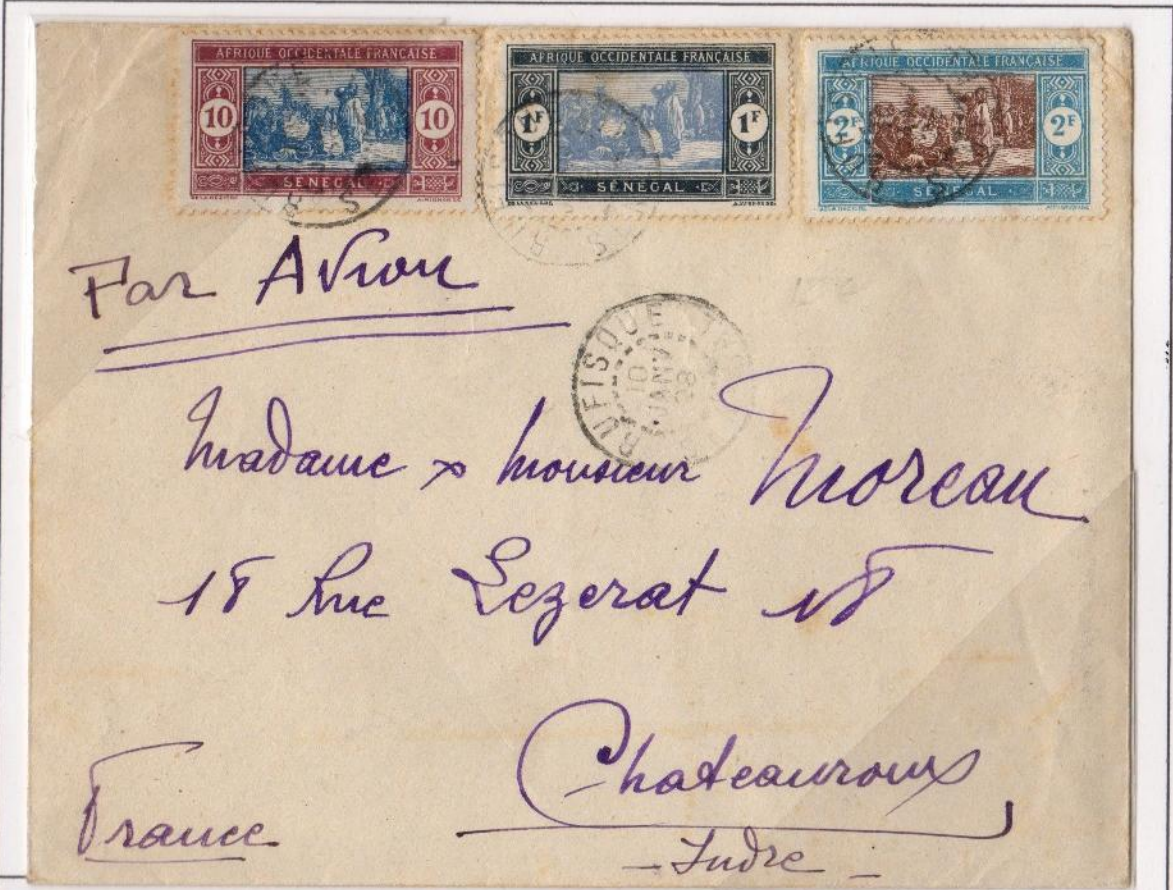 AFRIQUE OCCIDENTALE FRANÇAISE
10 10
SÉNÉGAL
AFRIQUE OCCIDENTALE FRANÇAISE
1F 1F
SÉNÉGAL
AFRIQUE OCCIDENTALE FRANÇAISE
2F 2F
SÉNÉGAL
Par Avion
RUFISQUE
10
JANV
38
Madame & Monsieur Moreau
18 Rue Lezerat 18
Chateauroux
France
- Indre -